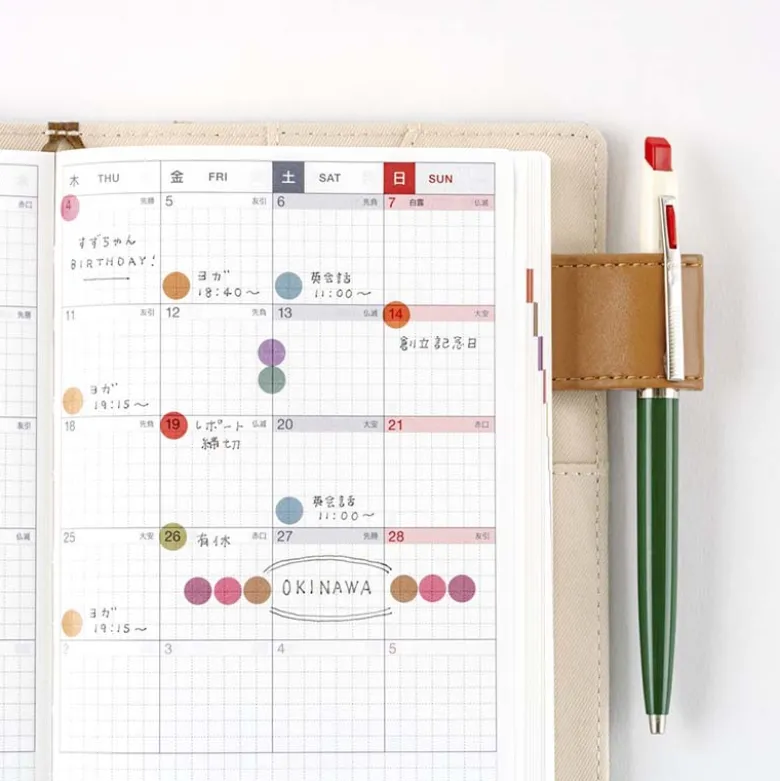 木 THU 金 FRI 土 SAT 日 SUN
赤口 4 先勝 5 友引 6 先負 7 白露 仏滅
すずちゃん
BIRTHDAY!
ヨガ 英会話
18:40〜 11:00〜
先勝 11 友引 12 先負 13 仏滅 14 大安
創立記念日
ヨガ
19:15〜
友引 18 先負 19 レポート 仏滅 20 大安 21 赤口
締切
英会話
11:00〜
仏滅 25 大安 26 有休 赤口 27 先勝 28 友引
OKINAWA
ヨガ
19:15〜
2 3 4 5